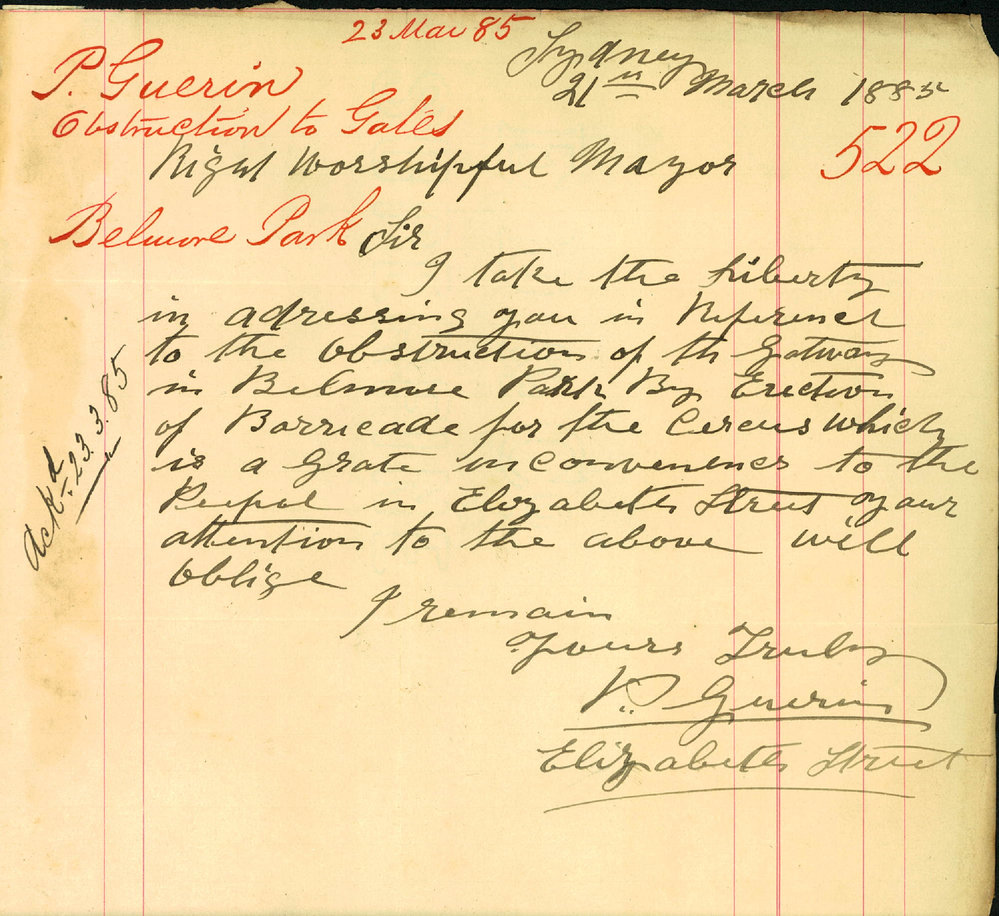 23 Mar 85
Sydney
21st March 1885
P. Guerin
Obstruction to Gates
522
Right Worshipful Mayor
Belmore Park
Sir
I take the Liberty
in adressing you in Reference
to the Obstruction of th Gatway
in Belmore Park By Erection
of Barricade for the Cercus which
is a Grate inconvenence to the
Peepol in Elizabeth Street your
attention to the above will
oblige
I remain
Yours Truly
P. Guerin
Elizabeth Street
Ackd 23.3.85